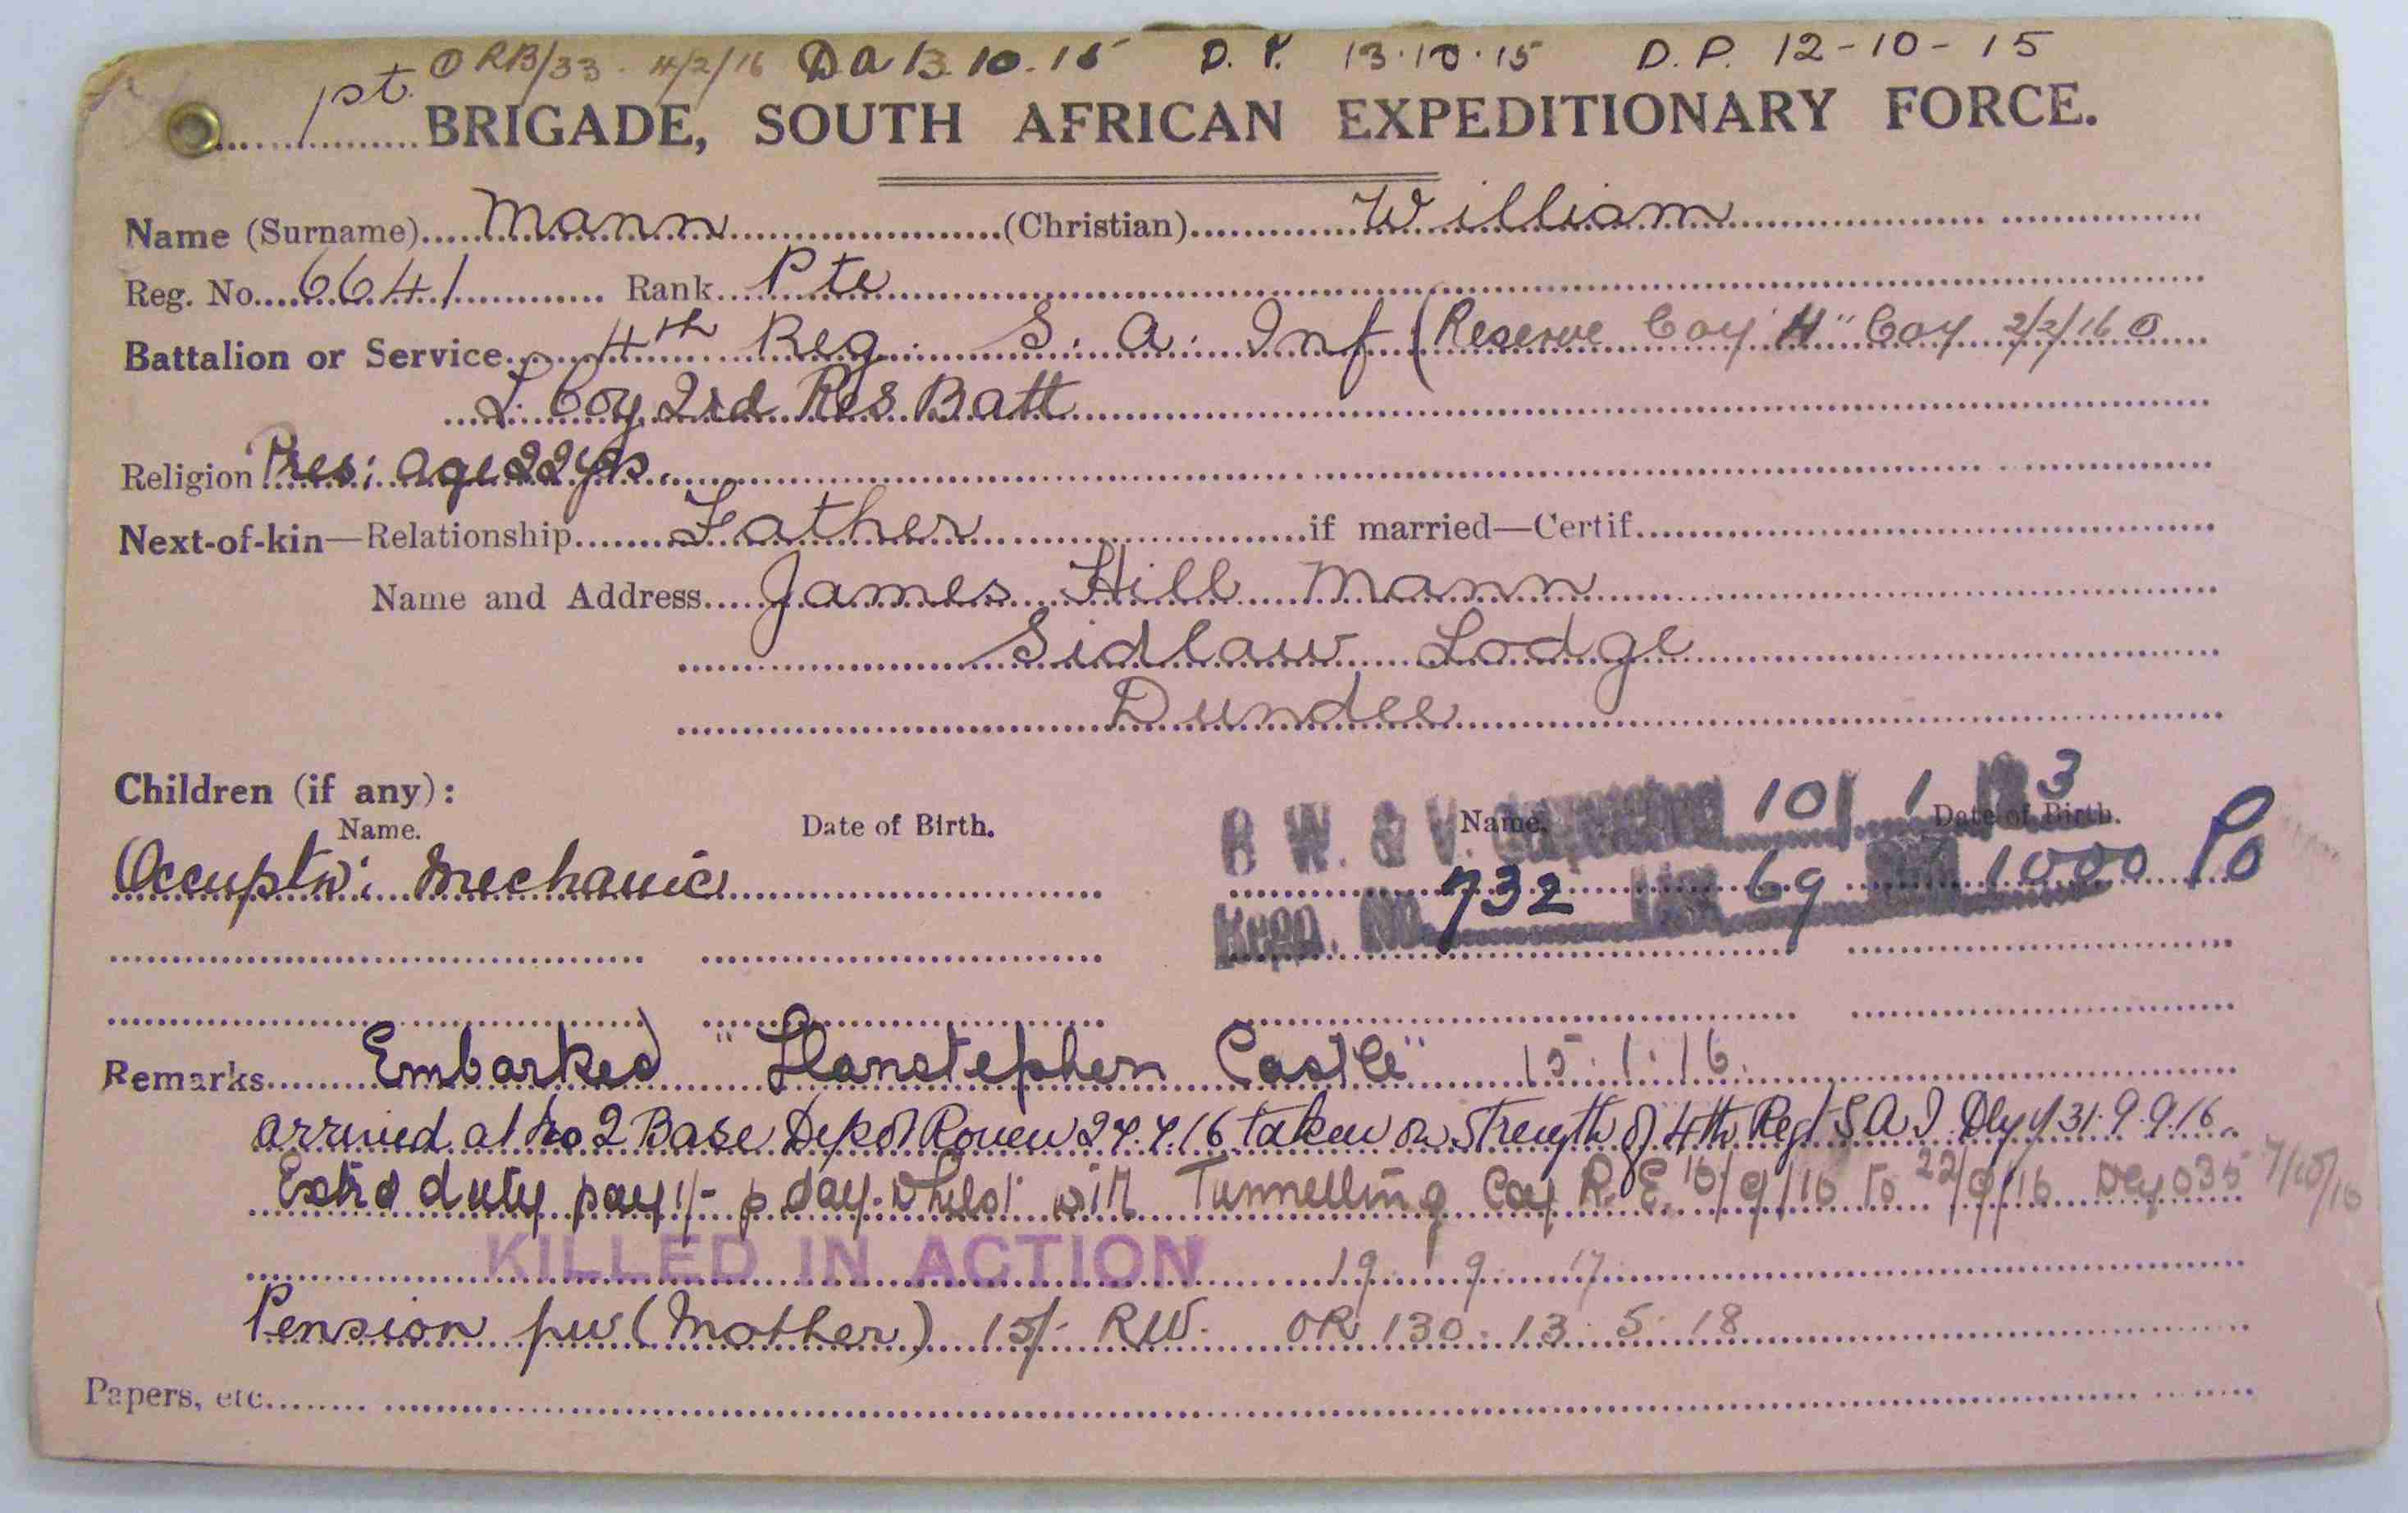 ① RB/33. 4/2/16 DA 13.10.15 D.P. 13.10.15 D.P. 12-10-15
1st BRIGADE, SOUTH AFRICAN EXPEDITIONARY FORCE.
Name (Surname) Mann (Christian) William
Reg. No. 6641 Rank Pte
Battalion or Service 4th Reg. S. A. Inf (Reserve Coy "H" Coy 2/2/16 ①
Coy 2nd Res Batt
Religion Pres: age 22 yrs.
Next-of-kin—Relationship Father if married—Certif.
Name and Address James Hill Mann
Sidlaw Lodge
Dundee
Children (if any):
Name. Date of Birth. Name. Date of Birth.
B. W. & V. 10/ 1 3
Occuptn: Mechanic
Regn. No. 732 List 69 1000 Po
Remarks Embarked "Llanstephen Castle" 15.1.16.
arrived at No 2 Base Depot Rouen 27.7.16 taken on strength of 4th Regt S A I Dly 31. 9.9.16.
Extra duty pay 1/- p day whilst with Tunnelling Coy R.E. 16/9/16 to 22/9/16 Dly 035 7/10/16
KILLED IN ACTION 19 9 17
Pension pw (Mother) 15/- RW. OR 130. 13. 5. 18
Papers, etc.